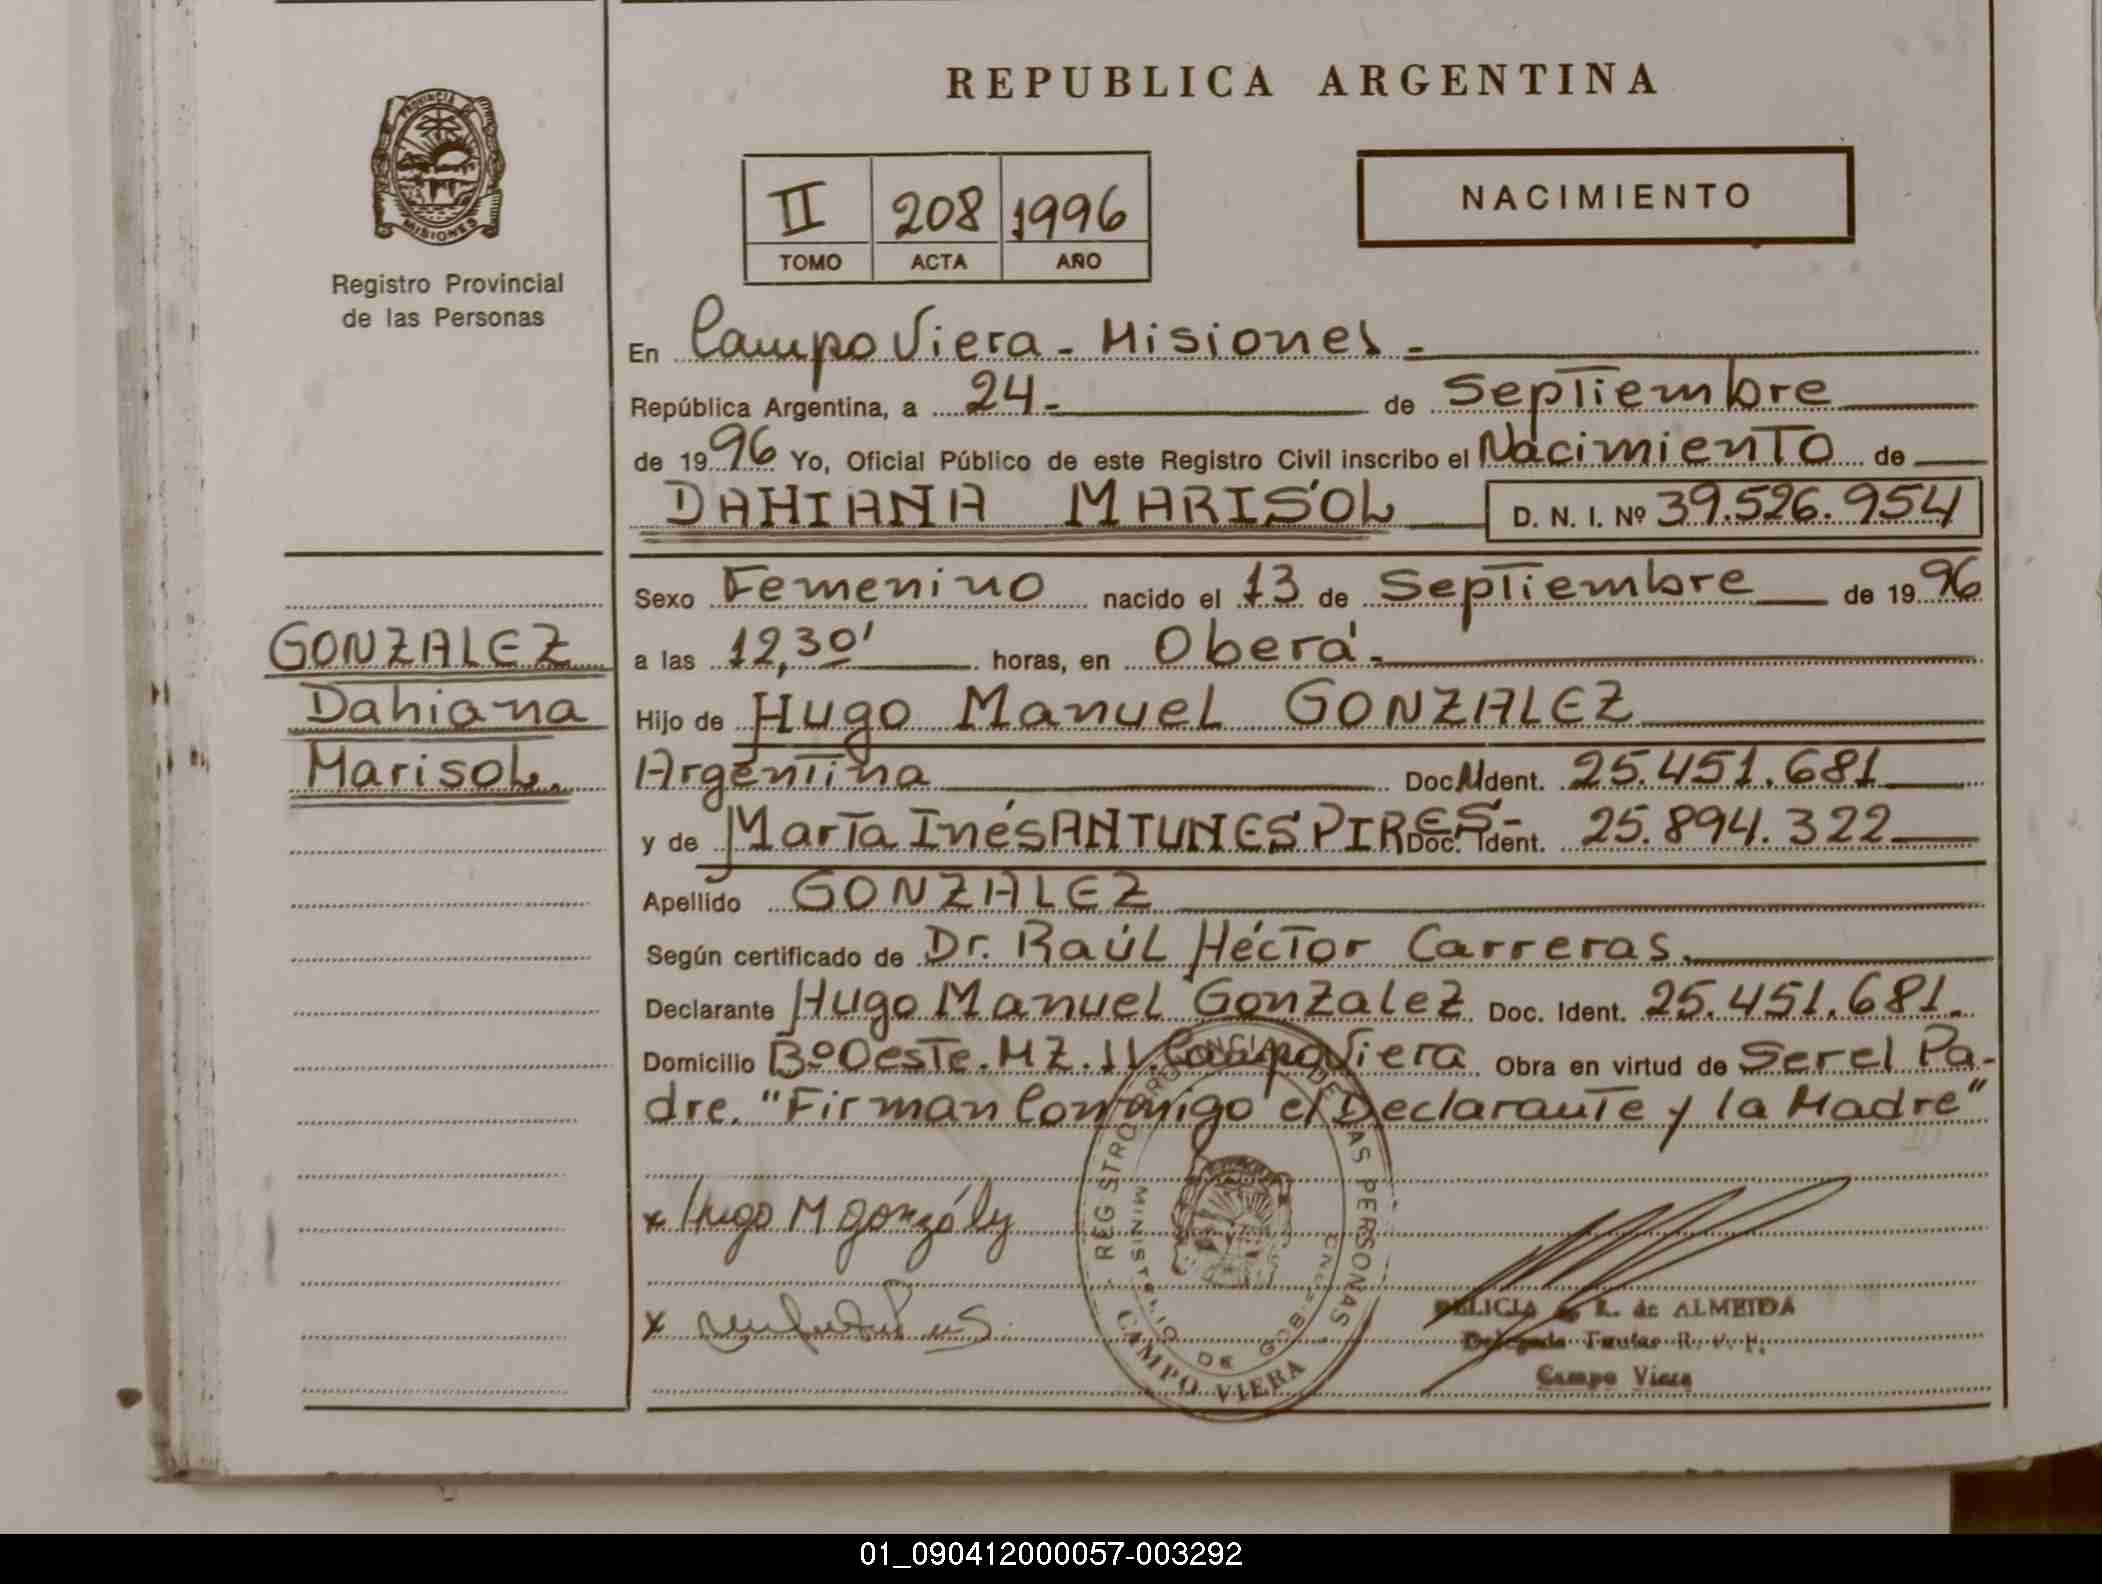 REPUBLICA ARGENTINA
PROVINCIA DE
MISIONES
Registro Provincial
de las Personas
II 208 1996
TOMO ACTA AÑO
NACIMIENTO
En Campo Viera - Misiones -
República Argentina, a 24 - de Septiembre
de 1996 Yo, Oficial Público de este Registro Civil inscribo el Nacimiento de
DAHIANA MARISOL D. N. I. Nº 39.526.954
GONZALEZ
Dahiana
Marisol.
Sexo Femenino nacido el 13 de Septiembre de 1996
a las 12,30' horas, en Oberá -
Hijo de Hugo Manuel GONZALEZ
Argentina Doc. Ident. 25.451.681
y de Marta Inés ANTUNES PIRES - Doc. Ident. 25.894.322
Apellido GONZALEZ
Según certificado de Dr. Raúl Héctor Carreras.
Declarante Hugo Manuel Gonzalez Doc. Ident. 25.451.681.
Domicilio Bº Oeste. MZ. 11. Campo Viera Obra en virtud de Ser el Pa-
dre. "Firman Conmigo el Declarante y la Madre"
x Hugo M González
x
REGISTRO PROVINCIAL DE LAS PERSONAS
MINISTERIO DE GOB
CAMPO VIERA
DELICIA R. de ALMEIDA
Delegada Titular R. P. P.
Campo Viera
01_090412000057-003292